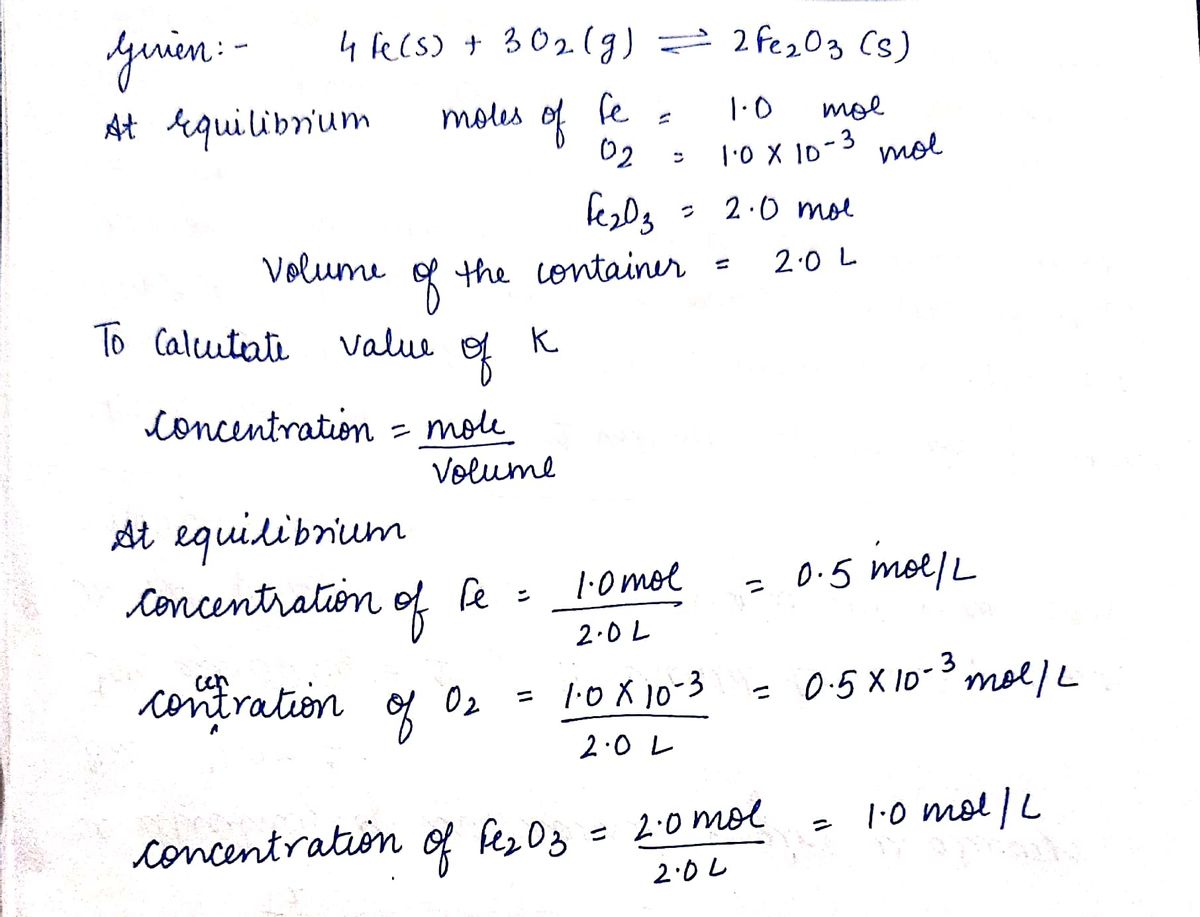 Given:- 4 Fe(s) + 3 O2 (g) ⇌ 2 Fe2O3 (s)
At equilibrium moles of Fe = 1.0 mol
O2 = 1.0 X 10-3 mol
Fe2O3 = 2.0 mol
Volume of the container = 2.0 L
To Calcutate value of K
Concentration = mole
Volume
At equilibrium
Concentration of Fe = 1.0 mol = 0.5 mol/L
2.0 L
concentration of O2 = 1.0 X 10-3 = 0.5 X 10-3 mol/L
2.0 L
concentration of Fe2O3 = 2.0 mol = 1.0 mol/L
2.0 L